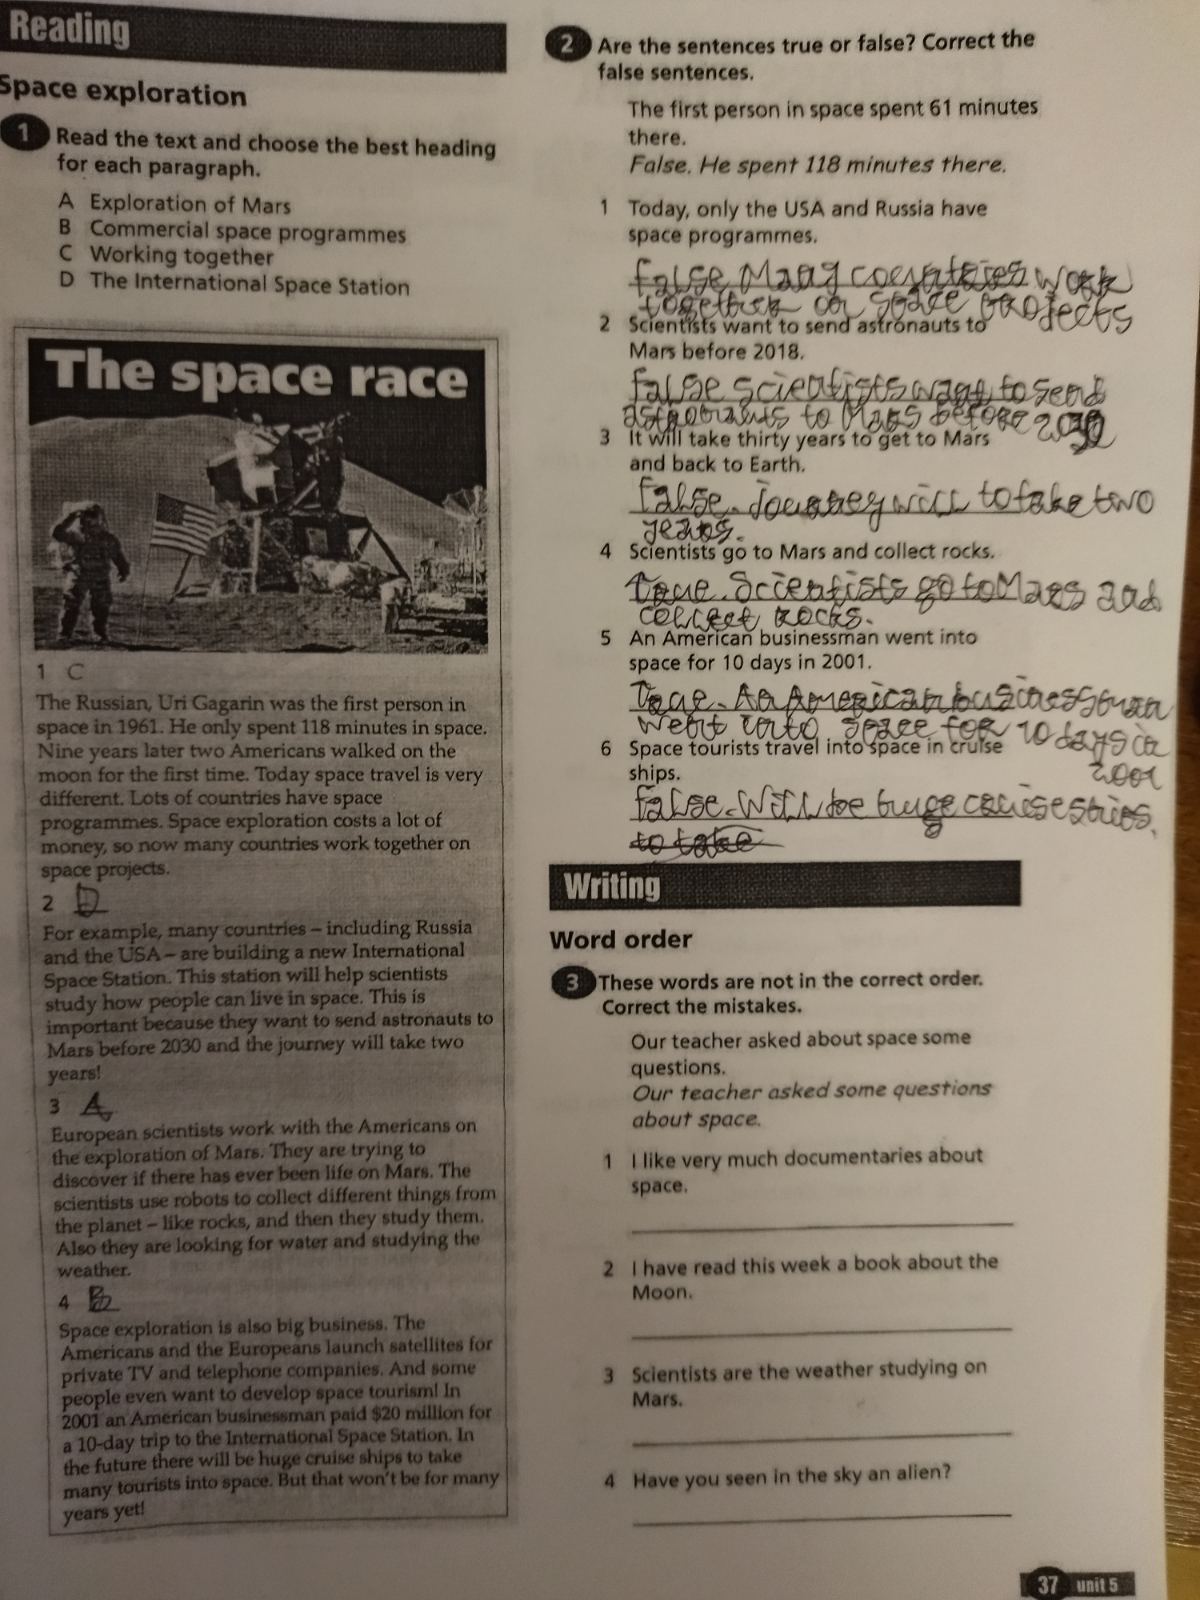 Reading
Space exploration
1 Read the text and choose the best heading
for each paragraph.
A Exploration of Mars
B Commercial space programmes
C Working together
D The International Space Station
The space race
1 C
The Russian, Uri Gagarin was the first person in
space in 1961. He only spent 118 minutes in space.
Nine years later two Americans walked on the
moon for the first time. Today space travel is very
different. Lots of countries have space
programmes. Space exploration costs a lot of
money, so now many countries work together on
space projects.
2 D
For example, many countries – including Russia
and the USA – are building a new International
Space Station. This station will help scientists
study how people can live in space. This is
important because they want to send astronauts to
Mars before 2030 and the journey will take two
years!
3 A
European scientists work with the Americans on
the exploration of Mars. They are trying to
discover if there has ever been life on Mars. The
scientists use robots to collect different things from
the planet – like rocks, and then they study them.
Also they are looking for water and studying the
weather.
4 B
Space exploration is also big business. The
Americans and the Europeans launch satellites for
private TV and telephone companies. And some
people even want to develop space tourism! In
2001 an American businessman paid $20 million for
a 10-day trip to the International Space Station. In
the future there will be huge cruise ships to take
many tourists into space. But that won't be for many
years yet!
2 Are the sentences true or false? Correct the
false sentences.
The first person in space spent 61 minutes
there.
False. He spent 118 minutes there.
1 Today, only the USA and Russia have
space programmes.
False Many countries work
together on space projects
2 Scientists want to send astronauts to
Mars before 2018.
False scientists want to send
astronauts to Mars before 2030
3 It will take thirty years to get to Mars
and back to Earth.
False. journey will to take two
years.
4 Scientists go to Mars and collect rocks.
True. Scientists go to Mars and
collect rocks.
5 An American businessman went into
space for 10 days in 2001.
True. An American businessman
went into space for 10 days in
2001
6 Space tourists travel into space in cruise
ships.
False. Will be huge cruise ships.
to take
Writing
Word order
3 These words are not in the correct order.
Correct the mistakes.
Our teacher asked about space some
questions.
Our teacher asked some questions
about space.
1 I like very much documentaries about
space.
2 I have read this week a book about the
Moon.
3 Scientists are the weather studying on
Mars.
4 Have you seen in the sky an alien?
37 unit 5